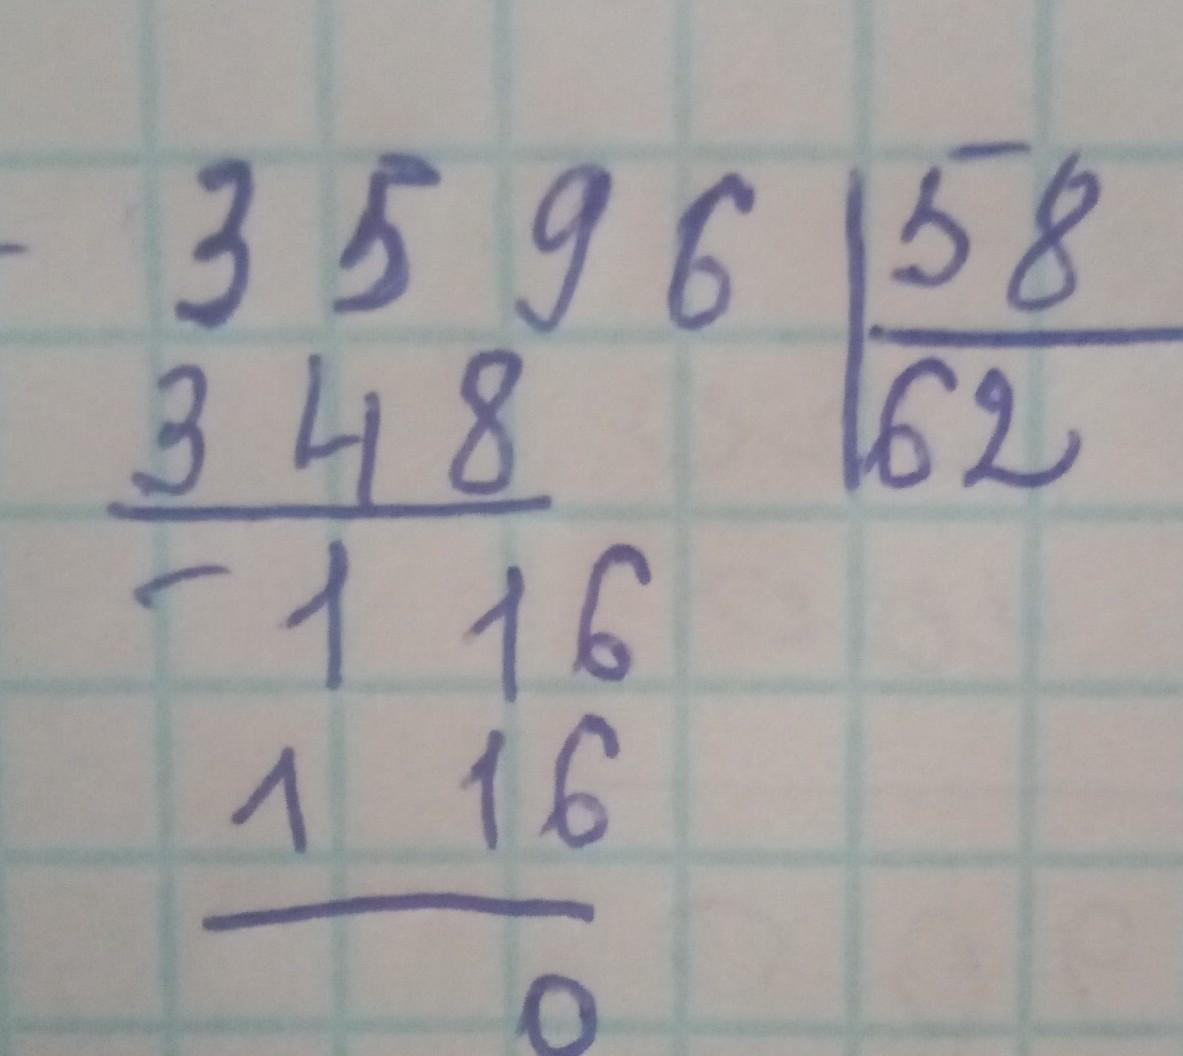 - 3596 | 58
348 | 62
- 116
116
0